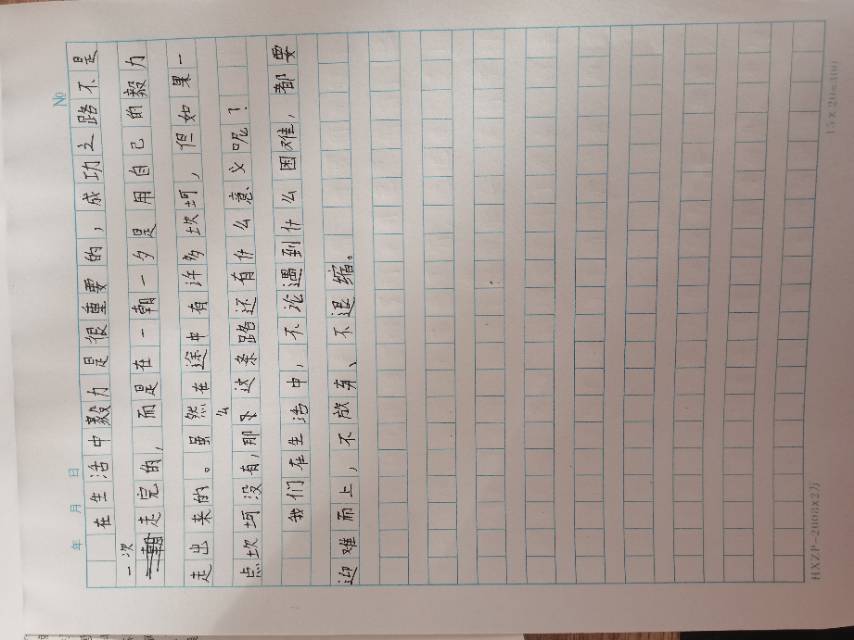 №
年 月 日
在生活中毅力是很重要的，成功之路不是
一次
走完的，而是在一朝一夕是用自己的毅力
走出来的。虽然在途中有许多坎坷，但如果一
点坎坷没有，那么这条路还有什么意义呢？
我们在生活中，不论遇到什么困难，都要
迎难而上，不放弃、不退缩。
15×20=300
HXZP-2008×2万